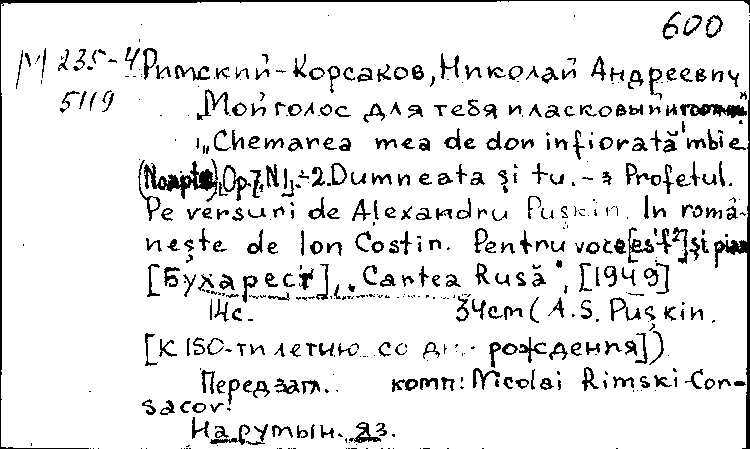 600
М 235-4 Римский-Корсаков, Николай Андреевич
5119 „Мой голос для тебя и ласковый и томный"
„Chemarea mea de dor infiorată 'mbie
(Noapte), Op. 7, N 1. - 2. Dumneata și tu. - 3 Profetul.
Pe versuri de Alexandru Pușkin. In româ-
nește de Ion Costin. Pentru voce [es'-f²] și pian
[Бухарест], „Cartea Rusă", [1949]
14 с. 34 cm (A.S. Pușkin.
[К 150-ти летию со дн. рождения])
Перед загл. комп: Nicolai Rimski-Cor-
sacov.
На румын. яз.